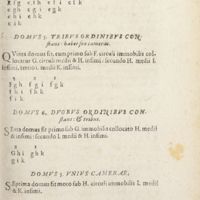 efh efi efk
egh egi egk
ehi ehk
eik
DOMVS 5. TRIBVS ORDINIBVS CON
stans: habet sex cameras.
QVinta domus fit, cum primo sub F. circuli immobilis col
locatur G. circuli medii & H. infimi: secundo H. medii I.
infimi, tertio I. medii K. infimi.
Fgh fgi fgk
fhi fhk
fik
DOMVS 6. DVOBVS ORDINIBVS CON
stans: & tribus
SExta domus fit primo sub G. immobili collocato H. medii
& infimi: secundo I. medii & H. infimi.
Ghi ghk
gik
DOMVS 7. VNIVS CAMERAE.
SEptima domus fit modo sub H. circuli immobilis I. medii
& K. infimi.